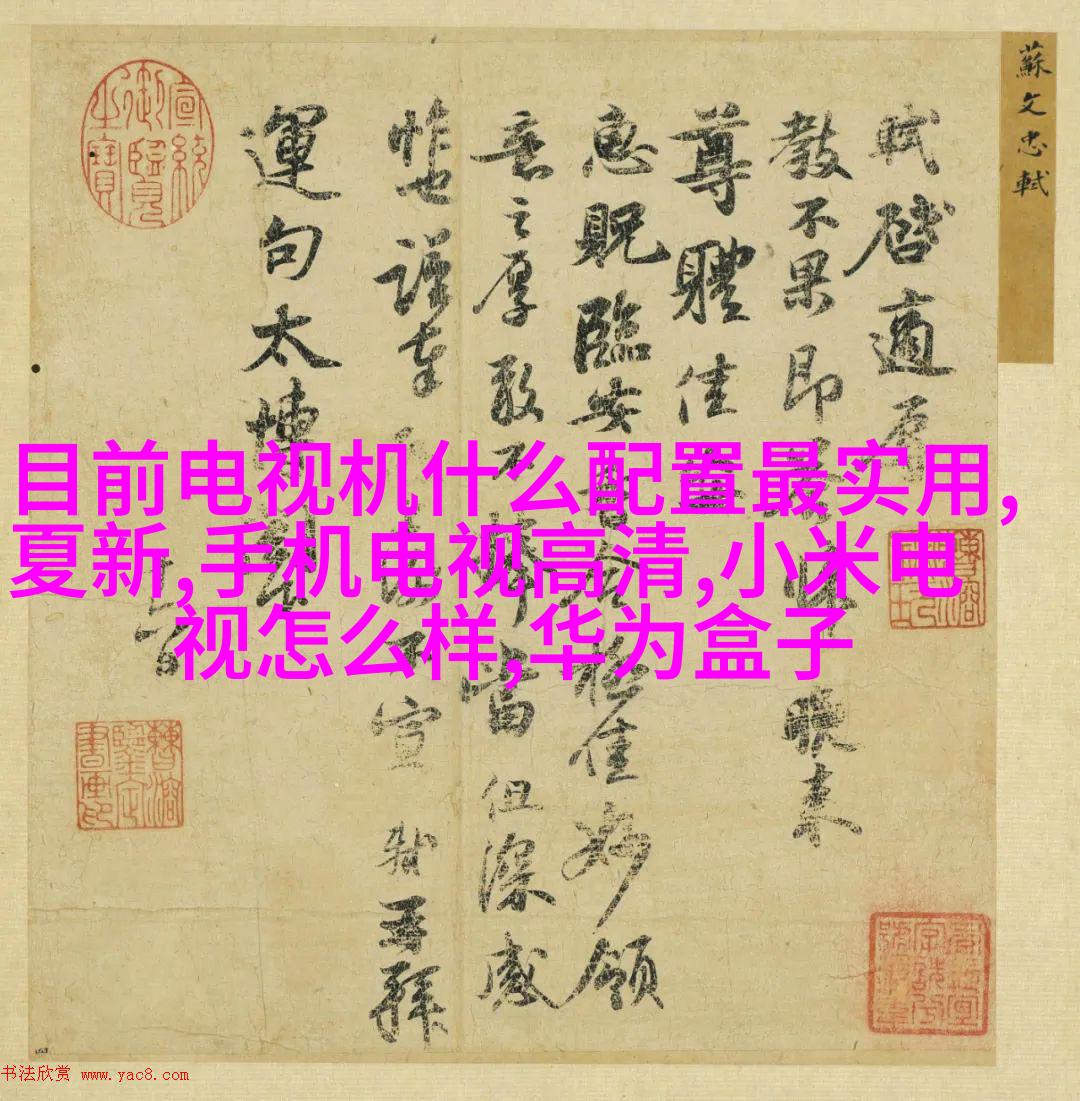 蘇文忠軾
軾啓適辱
教不果即 晚來
尊體佳
惠貺臨安香合極佳妙領
意之厚敢不 當但深感
怍也謹奉 不宣 軾再拜
運句太博
目前电视机什么配置最实用,
夏新,手机电视高清,小米电
视怎么样,华为盒子
书法欣赏 www.yac8.com